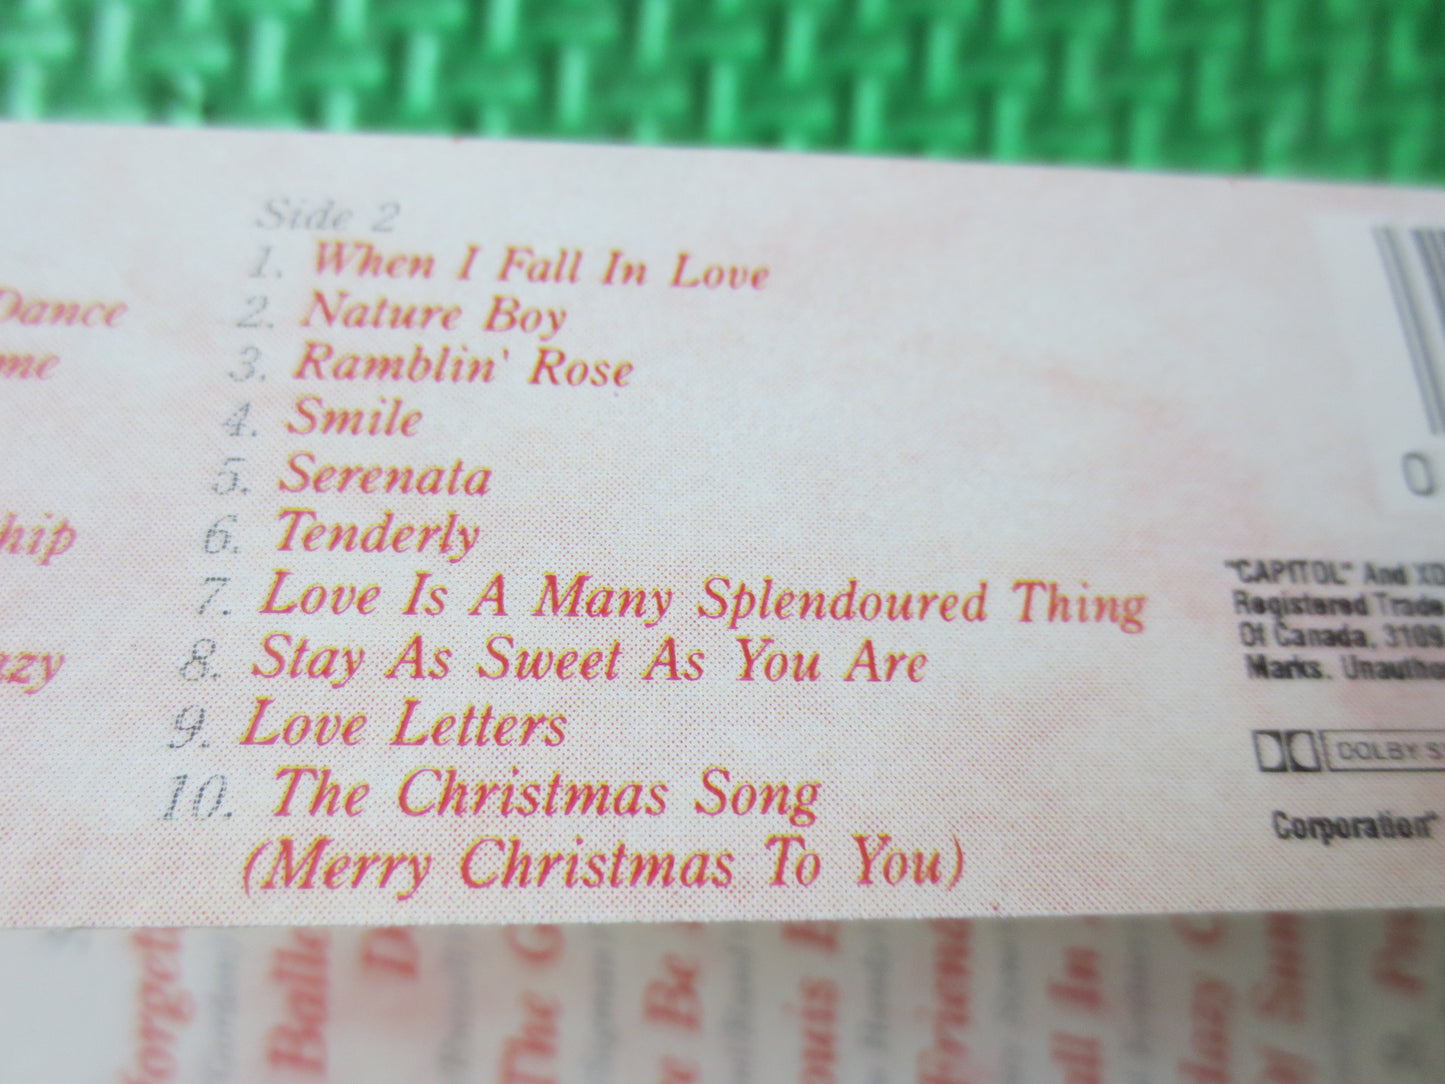 Side 2
1. When I Fall In Love
2. Nature Boy
3. Ramblin' Rose
4. Smile
5. Serenata
6. Tenderly
7. Love Is A Many Splendoured Thing
8. Stay As Sweet As You Are
9. Love Letters
10. The Christmas Song
(Merry Christmas To You)
Dance
me
hip
azy
0
"CAPITOL" And XD
Registered Trade
Of Canada, 3109
Marks. Unautho
DOLBY S
Corporation"